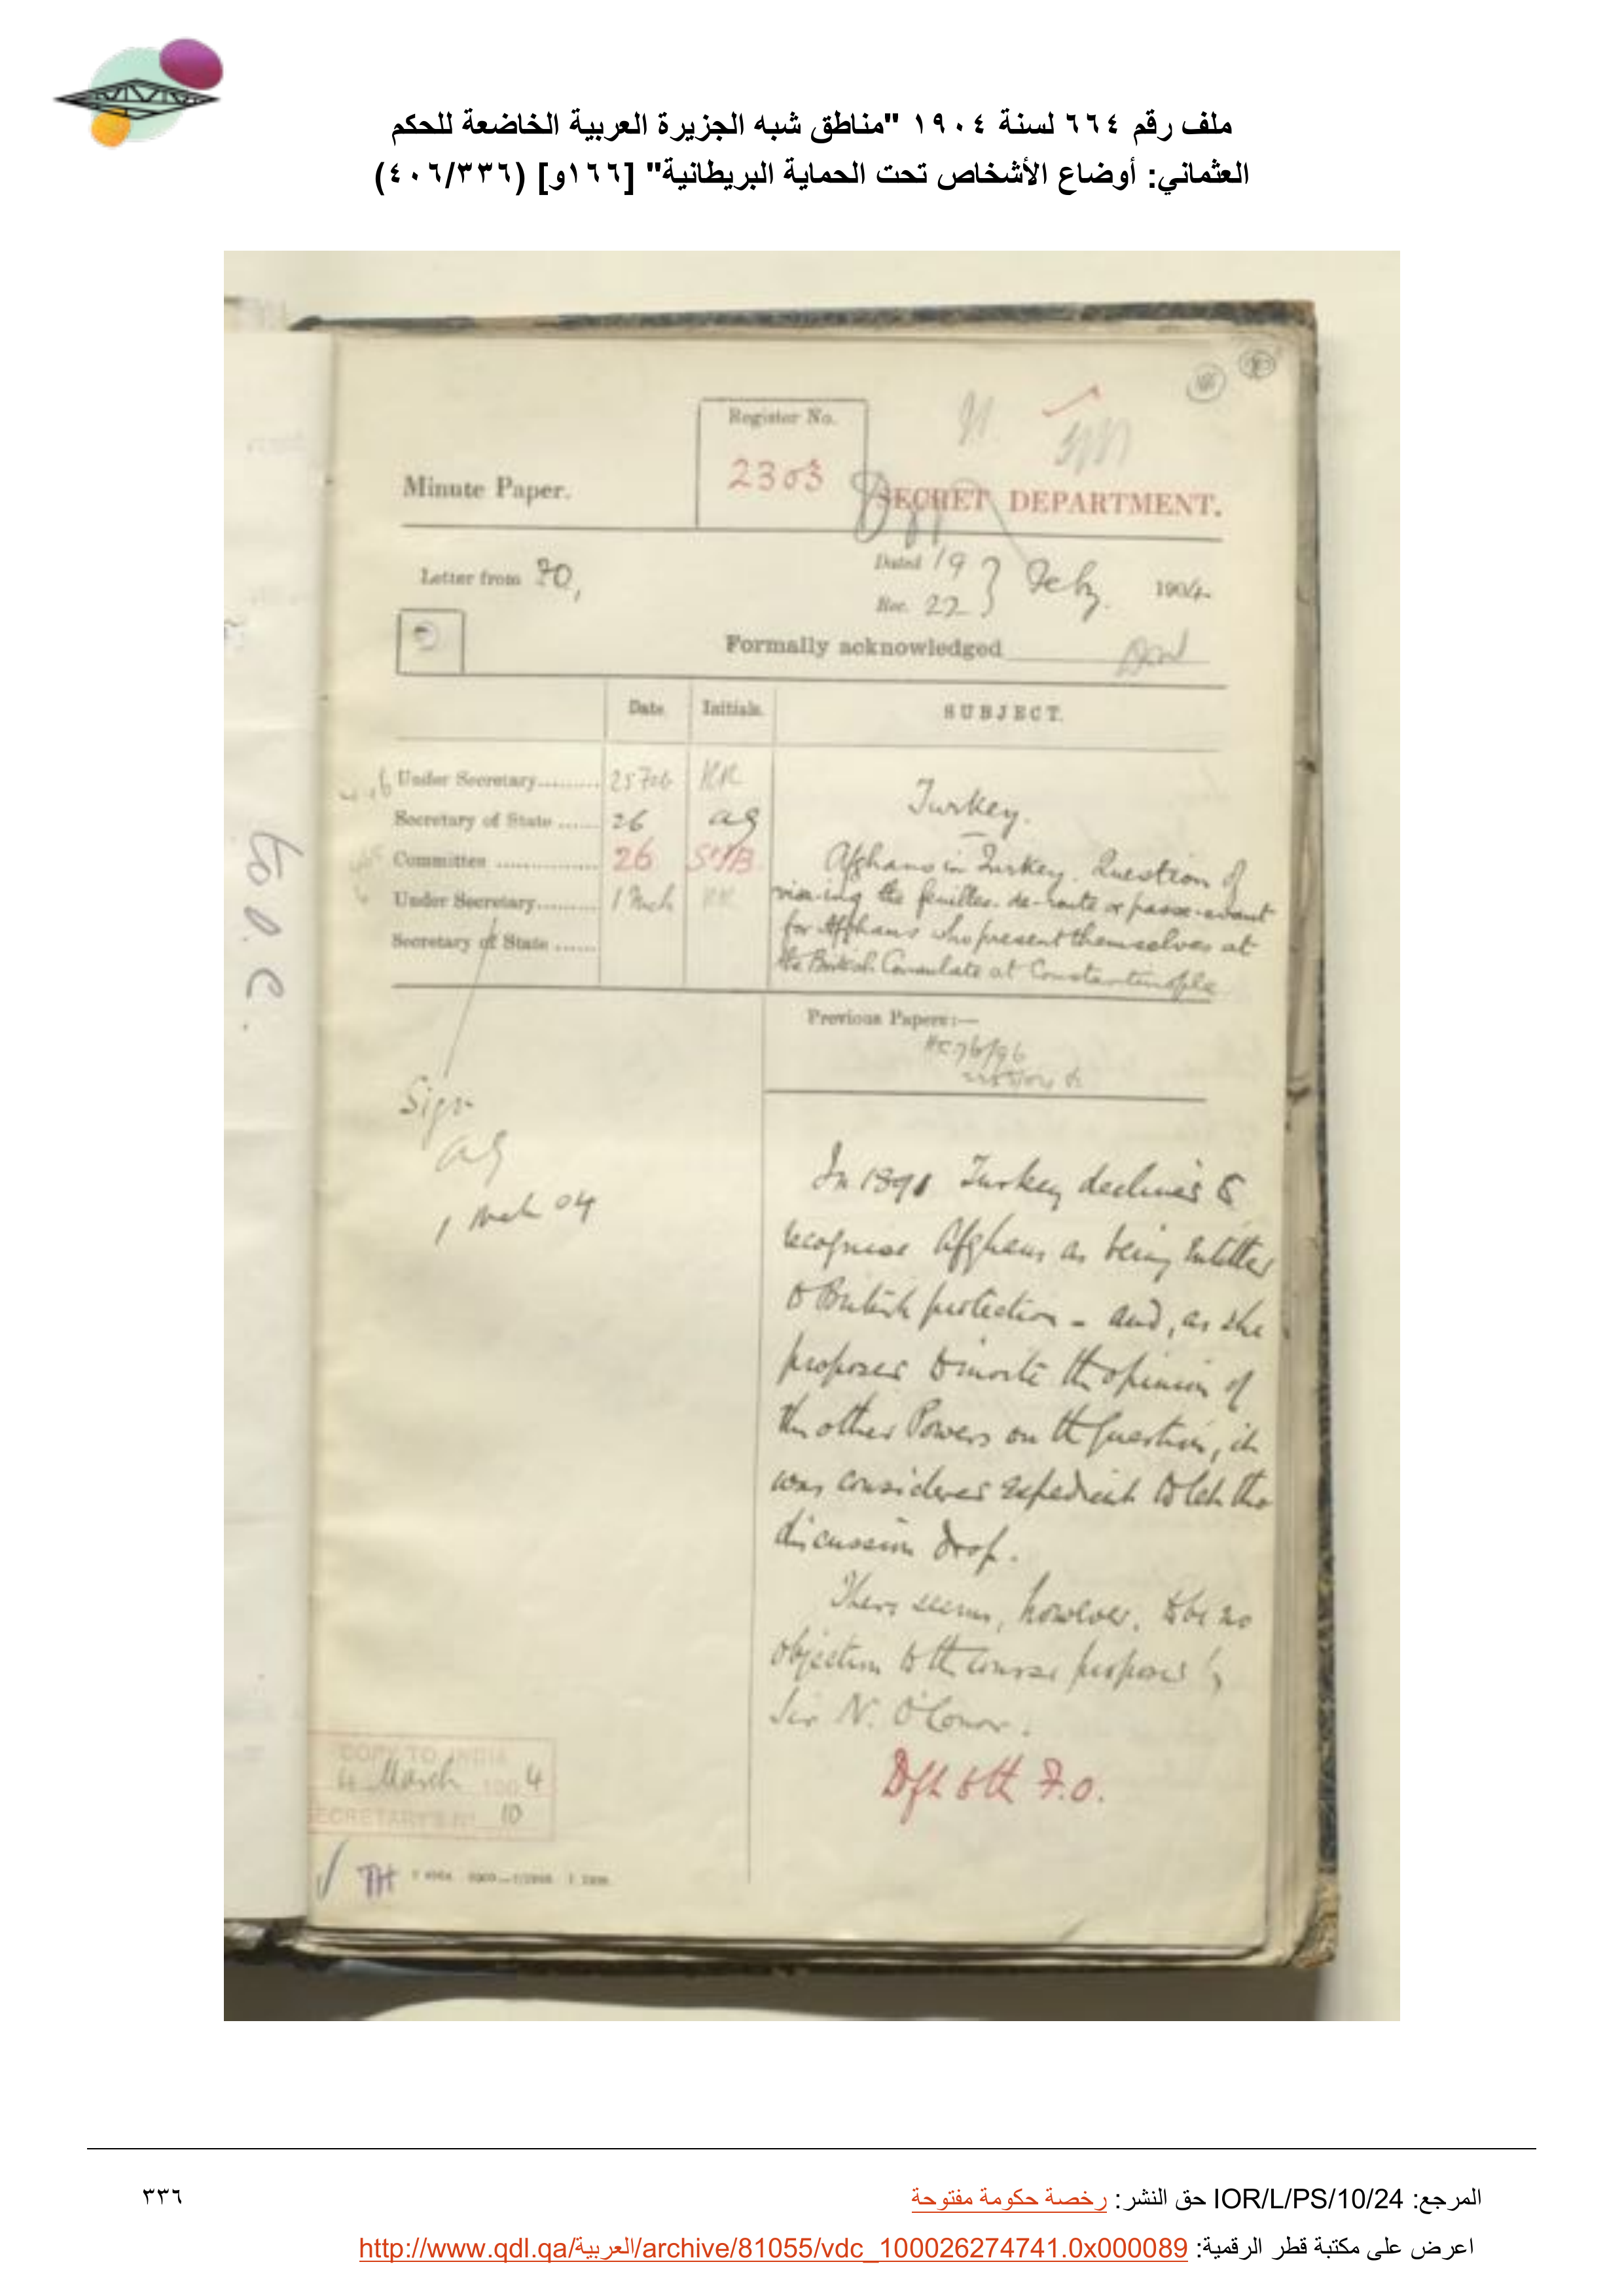 ملف رقم ٦٦٤ لسنة ١٩٠٤ "مناطق شبه الجزيرة العربية الخاضعة للحكم
العثماني: أوضاع الأشخاص تحت الحماية البريطانية" [١٦٦و] (٤٠٦/٣٣٦)
Register No.
2303
Minute Paper.
SECRET DEPARTMENT.
Letter from F.O,
Dated 19
Rec. 22
Feby. 1904
Formally acknowledged
Date. Initials. SUBJECT.
Under Secretary......... 25 Feb
Secretary of State ...... 26 AG
Committee ............... 26
Under Secretary.......... 1 Mch
Secretary of State ......
Turkey.
Afghans in Turkey. Question of
visa-ing the feuilles-de-route or passe-avant
for Afghans who present themselves at
the British Consulate at Constantinople
Previous Papers:—
Sign
AG
1 Mch 04
In 1891 Turkey declined to
recognise Afghans as being entitled
to British protection - and, as she
proposed to invite the opinion of
the other Powers on the question, it
was considered expedient to let the
discussion drop.
There seems, however, to be no
objection to the course proposed by
Sir N. O'Conor.
Dft to the F.O.
COPY TO INDIA
4 March 1904
SECRETARY'S No. 10
المرجع: IOR/L/PS/10/24 حق النشر: رخصة حكومة مفتوحة
٣٣٦
اعرض على مكتبة قطر الرقمية: http://www.qdl.qa/العربية/archive/81055/vdc_100026274741.0x000089